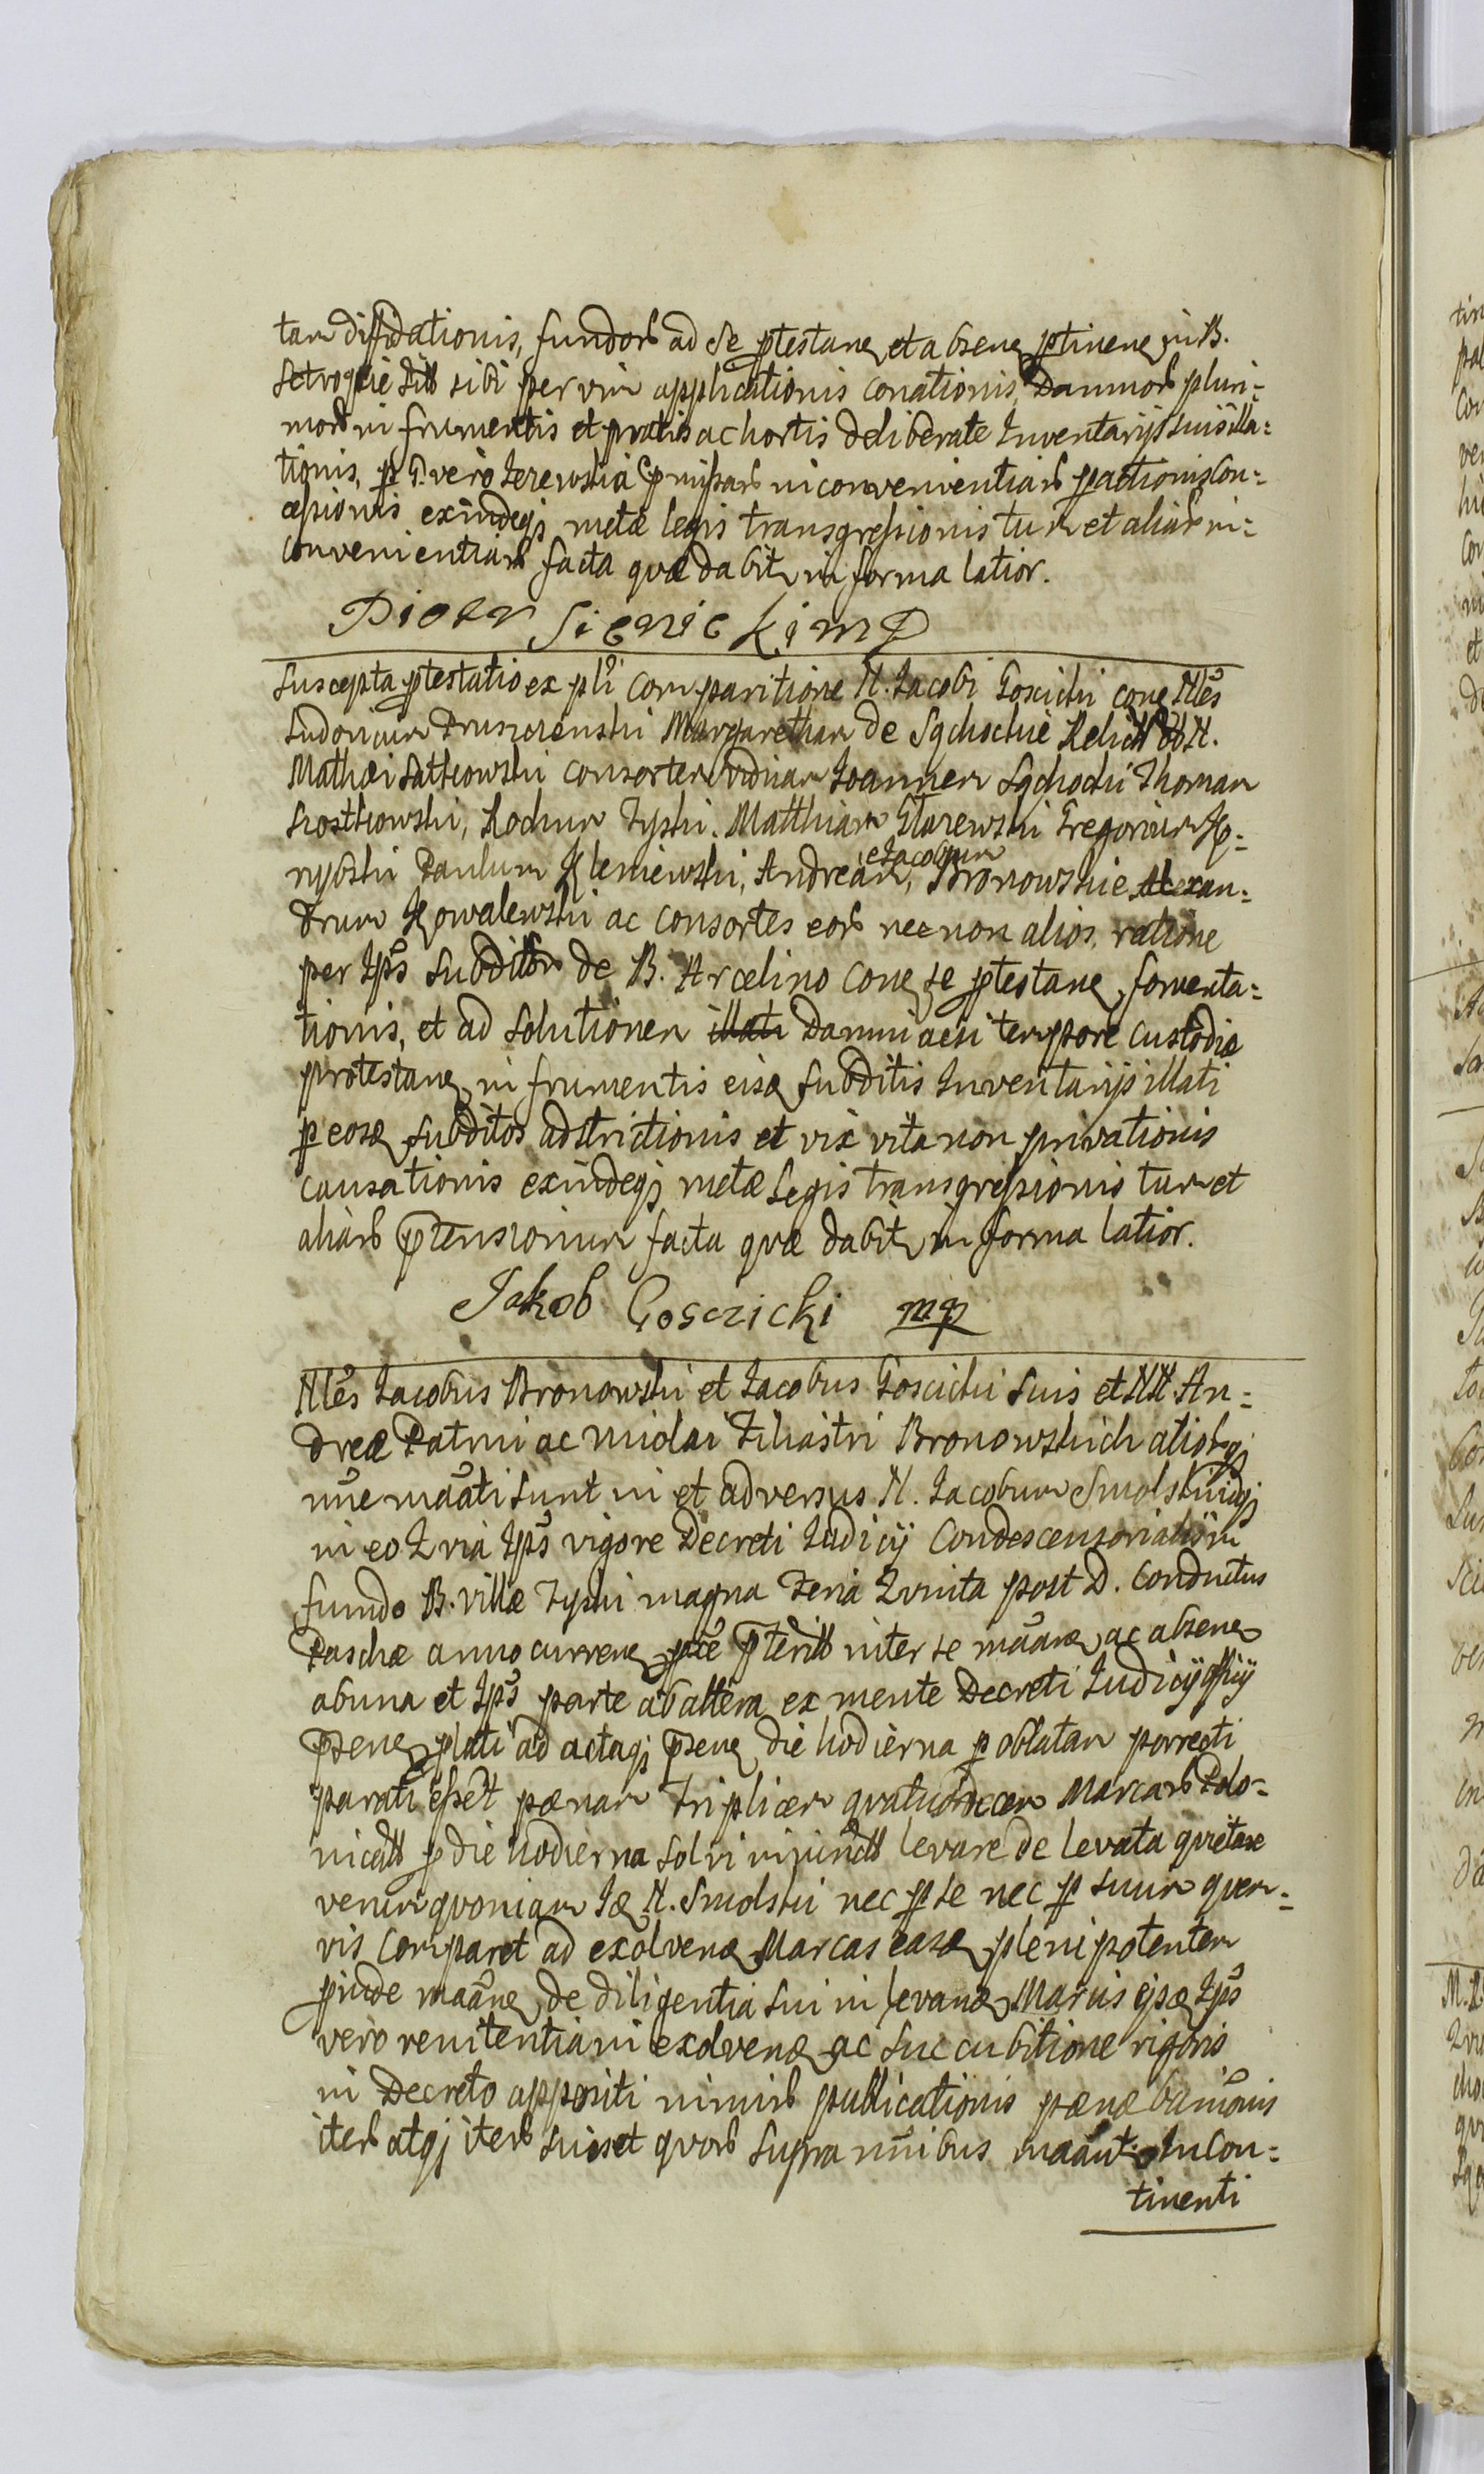 tam diffidationis, fundorb ad se ptestane et absene ptinene in B.
Setropcie Sitb sibi per vim applicationis conationis, Damnorb pluri=
morb in frumentis et pratis ac hortis deliberate Inventarijs suis illa=
tionis, p G. vero Jezewska pmissarb inconvenientiarb pactionis Con=
cessionis exindeqj metæ legis transgressionis tum et aliarb in=
convenientiarb facta quæ dabit in forma latior.
Piotr Sienicki mp
Suscepta ptestatio ex pli comparitione N. Jacobi Goscicki cone Nles
Ludovicum Margaretham de Sqchockie Relictb N.
Mathæi Sutkowski consortem viduam Joannem Sqchocki Thomam
Srostkowski, Rochum Zyski. Matthiam Gregorium Ko=
nybski Paulum Kleniewski, Andream, et Jacobum Bronowskie Alexan=
drum Kowalewski ac consortes eorb nec non alios, ratione
per Jps subditb de B. Arcelino cone se ptestane, fomenta=
tionis, et ad solutionem illati Damni acsi tempore custodiæ
protestane in frumentis eisq subditis Inventarijs illati
p eosq subditos adstrictionis et vix vita non privationis
causationis exindeqj metæ Legis transgressionis tum et
aliarb ptensionum facta quæ dabit in forma latior.
Jakob Gosczicki mp
Nles Jacobus Bronowski et Jacobus Goscicki suis et NN. An=
dreæ Patrui ac Nicolai Filiastri Bronowskich aliorbqj
nne maati sunt in et adversus N. Jacobum Smolski
in eo Qvia Jps vigore Decreti Judicij Condescensorialis in
fundo B. villæ Zyski magna Feria Qvinta post D. Conductus
Paschæ anno currene pte pteritb inter se maane ac absene
ab una et Jps parte ab altera ex mente Decreti Judicij
psene plati ad actaqj psene die hodierna p oblatam porrecti
parati esset pænam triplicem quatuordecem Marcarb Polo=
nicalb p die hodierna solvi injunctb levare de levata quietare
verum quoniam Iq N. Smolski nec p se nec p suum quem=
vis comparet ad exolvene Marcas easq plenipotentem
pinde maane de diligentia sui in levane Marcis ejsq Jps
vero renitentia in exolvene ac succubitione rigoris
in Decreto appositi nimirb publicationis pænæ banionis
iterb atqj iterb suis et quorb supra nnibus maant: In Con=
tinenti